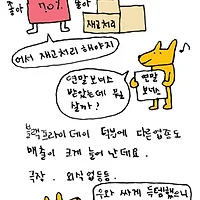 좋아 70% 좋아
재고처리
어서 재고처리 해야지
연말 보너스
받았는데 뭐
살까?
연말
보너스
블랙프라이데이 덕분에 다른 업종도
매출이 크게 늘어 난데요.
극장. 외식업 등등.
우와 싸게 득템했으니